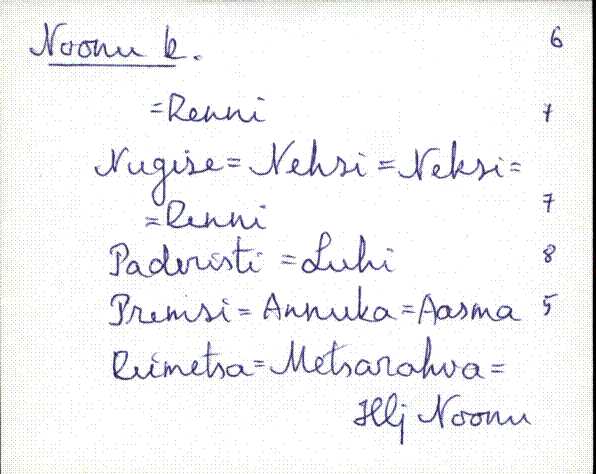 Noonu k. 6
=Renni 7
Nugise=Nehsi=Neksi=
=Renni 7
Paderisti=Luhi 8
Premsi=Annuka=Aasma 5
Reimetsa=Metsarahva=
Hlj Noonu